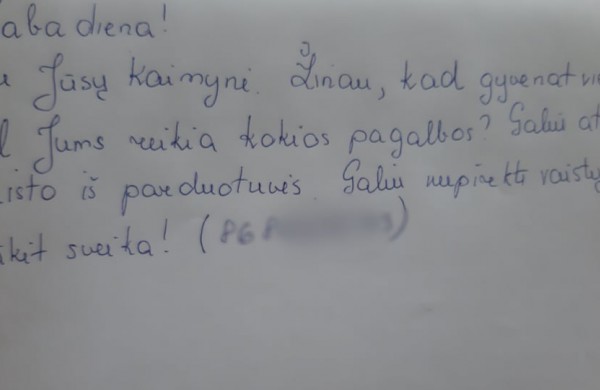 aba diena!
Jūsų kaimynė. Žinau, kad gyvenat vie
Jums reikia kokios pagalbos? Galiu at
isto iš parduotuvės. Galiu nupirkti vaistų
ikit sveika! (868